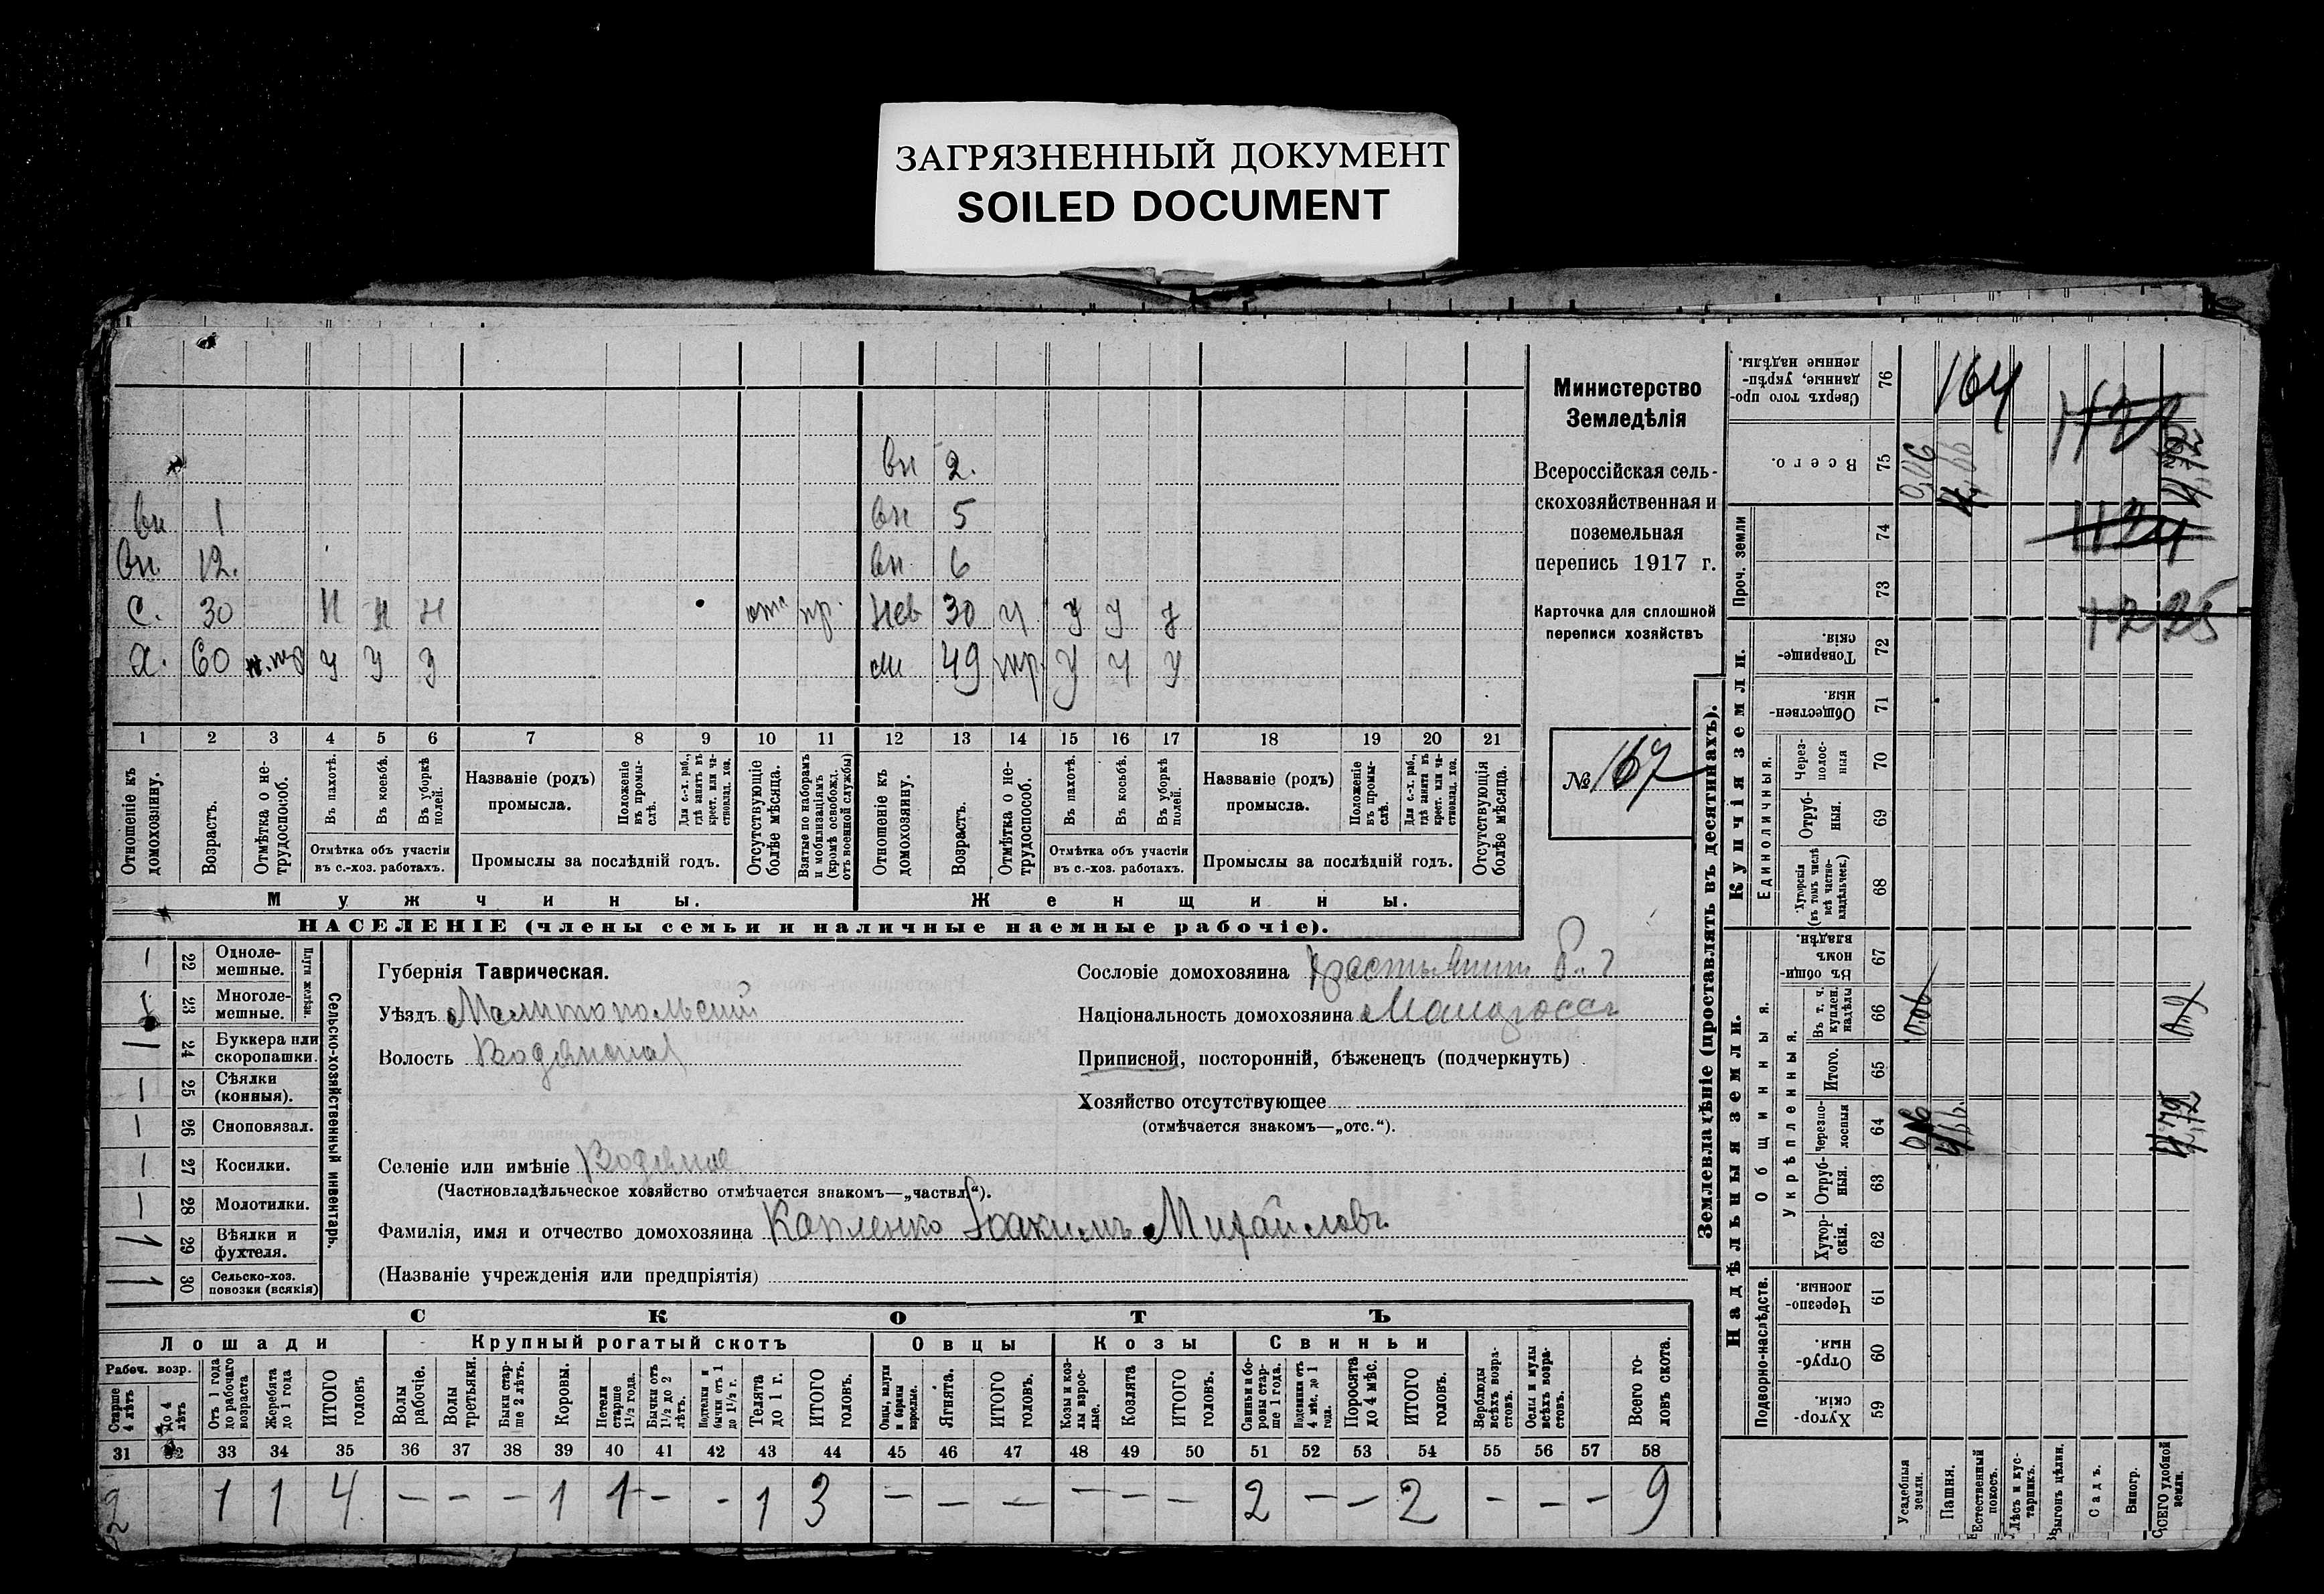 ЗАГРЯЗНЕННЫЙ ДОКУМЕНТ
SOILED DOCUMENT
вн 2.
вн 1 вн 5
вн 12. вн 6
с. 30 н н н отс пр. нев 30 ч у у у
х. 60 н.тр у у у ж 49 тр. у у у
1 2 3 4 5 6 7 8 9 10 11 12 13 14 15 16 17 18 19 20 21
Отношеніе къ домохозяину.
Возрастъ.
Отмѣтка о не-трудоспособ.
Въ пахотѣ.
Въ косьбѣ.
Въ уборкѣ полей.
Отмѣтка объ участіи
въ с.-хоз. работахъ.
Названіе (родъ)
промысла.
Положеніе въ промы-слѣ.
Для с.-х. раб., гдѣ занятъ въ крест. или ча-стновлад. хоз.
Промыслы за послѣдній годъ.
Отсутствующіе болѣе мѣсяца.
Взятые по наборамъ и мобилизаціямъ (кромѣ освобожд. отъ военной службы)
Отношеніе къ домохозяину.
Возрастъ.
Отмѣтка о не-трудоспособ.
Въ пахотѣ.
Въ косьбѣ.
Въ уборкѣ полей.
Отмѣтка объ участіи
въ с.-хоз. работахъ.
Названіе (родъ)
промысла.
Положеніе въ промы-слѣ.
Для с.-х. раб., гдѣ занята въ крест. или ча-стновлад. хоз.
Промыслы за послѣдній годъ.
Отсутствующія болѣе мѣсяца.
Мужчины. Женщины.
НАСЕЛЕНІЕ (члены семьи и наличные наемные рабочіе).
Министерство
Земледѣлія
Всероссійская сель-
скохозяйственная и
поземельная
перепись 1917 г.
Карточка для сплошной
переписи хозяйствъ
№ 167
Плуги желѣзн.
Сельско-хозяйственный инвентарь.
1 22 Одноле-мешные.
1 23 Многоле-мешные.
1 24 Буккера или скоропашки.
1 25 Сѣялки (конныя).
1 26 Сноповязал.
1 27 Косилки.
1 28 Молотилки.
1 29 Вѣялки и фухтеля.
1 30 Сельско-хоз. повозки (всякія)
Губернія Таврическая.
Уѣздъ Мелитопольский
Волость Водянская
Селеніе или имѣніе Водяное
(Частновладѣльческое хозяйство отмѣчается знакомъ—„частвл.“).
Фамилія, имя и отчество домохозяина Капленко Іоакимъ Михайловъ
(Названіе учрежденія или предпріятія)
Сословіе домохозяина
Національность домохозяина Малороссъ
Приписной, посторонній, бѣженецъ (подчеркнуть)
Хозяйство отсутствующее
(отмѣчается знакомъ—„отс.“).
СКОТЪ
Лошади Крупный рогатый скотъ Овцы Козы Свиньи
Рабоч. возр.
Старше 4 лѣтъ
до 4 лѣтъ
Отъ 1 года до рабочаго возраста
Жеребята до 1 года
ИТОГО головъ
Волы рабочіе.
Волы третьяки.
Быки стар-ше 2 лѣтъ.
Коровы.
Нетели старше 1½ года.
Бычки отъ 1½ до 2 лѣтъ.
Подтелки и бычки отъ 1 до 1½ г.
Телята до 1 г.
ИТОГО головъ.
Овцы, валухи и бараны взрослые.
Ягнята.
ИТОГО головъ.
Козы и коз-лы взрос-лые.
Козлята
ИТОГО головъ.
Свиньи и бо-ровы стар-ше 1 года.
Подсвинки отъ 4 мѣс. до 1 года.
Поросята до 4 мѣс.
ИТОГО головъ.
Верблюды всѣхъ возра-стовъ.
Ослы и мулы всѣхъ возра-стовъ.
Всего го-ловъ скота.
31 32 33 34 35 36 37 38 39 40 41 42 43 44 45 46 47 48 49 50 51 52 53 54 55 56 57 58
2 1 1 4 — — — 1 1 — - 1 3 — — — — — — 2 — — 2 - — — 9
Землевладѣніе (проставлять въ десятинахъ).
Надѣльныя земли. Купчія земли.
Проч. земли
Подворно-наслѣдств.
Общинныя.
Укрѣпленныя.
Единоличныя.
Сверхъ того про-данные, укрѣп-ленные надѣлы. 76
Всего. 75
74
73
Товарище-скія. 72
Обществен-ныя. 71
Через-полос-ныя 70
Отруб-ныя. 69
Хуторскія (въ томъ числѣ всѣ частно-владѣльческ.) 68
Въ общин-номъ владѣн. 67
Въ т. ч. куплен. надѣлы 66
Итого. 65
Черезпо-лосныя 64
Отруб-ныя. 63
Хутор-скія. 62
Черезпо-лосныя 61
Отруб-ныя. 60
Хутор-скія. 59
Усадебныя земли.
Пашня.
Естественный покосъ.
Лѣсъ и кус-тарникъ.
Выгонъ цѣлин.
Садъ.
Виногр.
ВСЕГО удобной земли.
164
1225